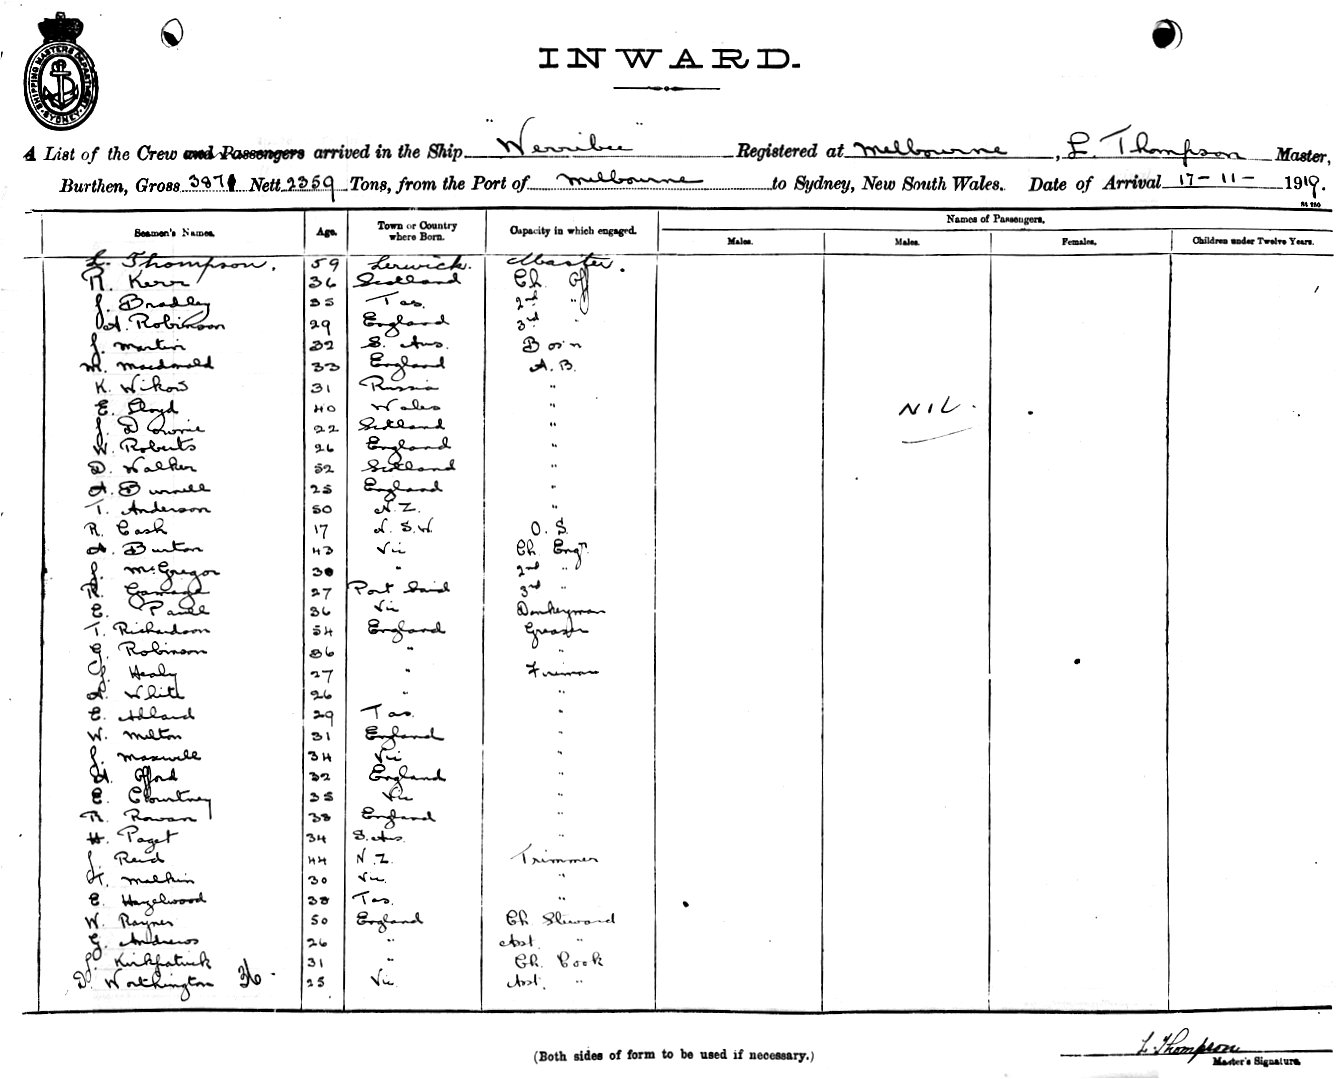 SHIPPING MASTERS DEPARTMENT SYDNEY
INWARD.
A List of the Crew and Passengers arrived in the Ship "Werribee" Registered at Melbourne, L. Thompson Master,
Burthen, Gross 3871 Nett 2359 Tons, from the Port of Melbourne to Sydney, New South Wales. Date of Arrival 17-11-1919.
Names of Passengers.
Seamen's Names. Age. Town or Country where Born. Capacity in which engaged. Males. Males. Females. Children under Twelve Years.
L. Thompson. 59 Lerwick. Master.
R. Kerr 36 Scotland Ch. Off
J. Bradley 35 Tas. 2nd "
A. Robinson 29 England 3rd "
J. Martin 32 S. Aus. Bos'n
M. Macdonald 33 England A.B.
K. Wikow 31 Russia "
E. Lloyd 40 Wales " NIL.
J. Downie 22 Scotland "
W. Roberts 26 England "
D. Walker 52 Scotland "
A. Burnell 25 England "
T. Anderson 50 N.Z. "
R. Cash 17 N.S.W. O.S.
A. Burton 43 Vic Ch. Engr.
J. McGregor 30 " 2nd "
R. Gamage 27 Port Said 3rd "
E. 36 Vic Donkeyman
T. Richardson 54 England Greaser
G. Robinson 36 " "
J. Healy 27 " Fireman
A. White 26 " "
E. Adland 29 Tas. "
W. Milton 31 England "
J. Maxwell 34 Vic "
A. Offord 32 England "
E. Courtney 35 Vic "
R. Rowan 38 England "
H. Paget 34 S. Aus. "
J. Reid 44 N.Z. Trimmer
T. Malkin 30 Vic. "
E. Hazelwood 38 Tas. "
W. Rayner 50 England Ch. Steward
G. Andrews 26 " Asst. "
J. Kirkpatrick 31 " Ch. Cook
D. Worthington 36. 25 Vic Asst. "
(Both sides of form to be used if necessary.)
L. Thompson
Master's Signature.